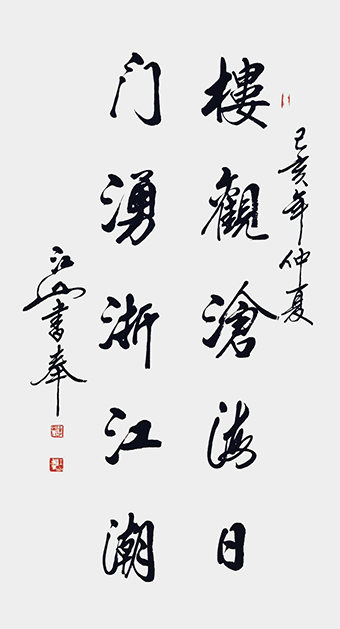 己亥年仲夏
樓觀滄海日
门湧浙江潮
江山書奉